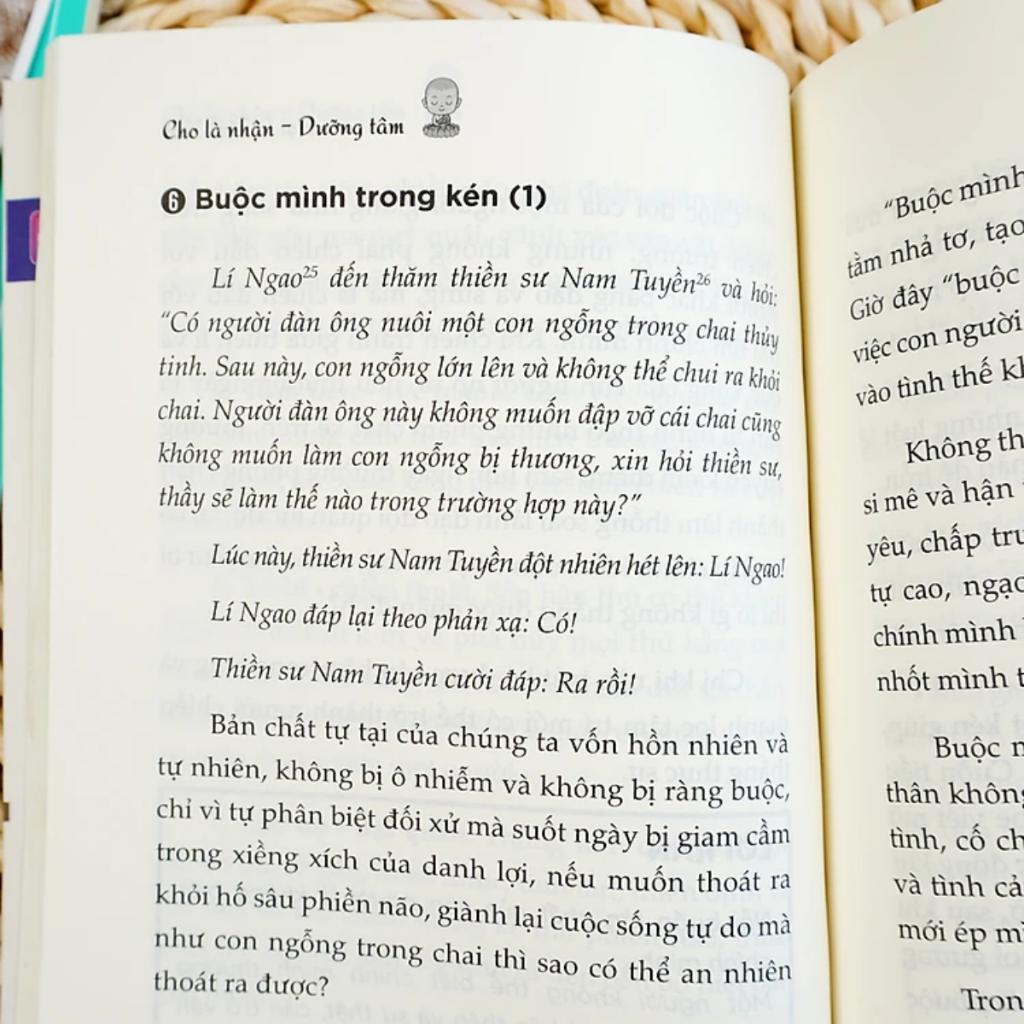 Cho là nhận – Dưỡng tâm
❻ Buộc mình trong kén (1)
Lí Ngao²⁵ đến thăm thiền sư Nam Tuyền²⁶ và hỏi:
“Có người đàn ông nuôi một con ngỗng trong chai thủy
tinh. Sau này, con ngỗng lớn lên và không thể chui ra khỏi
chai. Người đàn ông này không muốn đập vỡ cái chai cũng
không muốn làm con ngỗng bị thương, xin hỏi thiền sư,
thầy sẽ làm thế nào trong trường hợp này?”
Lúc này, thiền sư Nam Tuyền đột nhiên hét lên: Lí Ngao!
Lí Ngao đáp lại theo phản xạ: Có!
Thiền sư Nam Tuyền cười đáp: Ra rồi!
Bản chất tự tại của chúng ta vốn hồn nhiên và
tự nhiên, không bị ô nhiễm và không bị ràng buộc,
chỉ vì tự phân biệt đối xử mà suốt ngày bị giam cầm
trong xiềng xích của danh lợi, nếu muốn thoát ra
khỏi hố sâu phiền não, giành lại cuộc sống tự do mà
như con ngỗng trong chai thì sao có thể an nhiên
thoát ra được?
“Buộc mình
tằm nhả tơ, tạo
Giờ đây “buộc
việc con người
vào tình thế
Không
si mê và hận
yêu, chấp
tự cao,
chính mình
nhốt mình
Buộc
thân không
tình, cố
và tình
mới ép